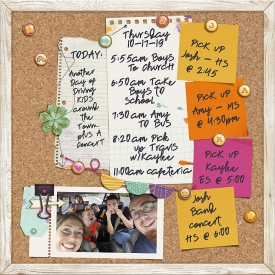 TODAY:
Another
Day of
Driving
KIDS
around
the
Town
plus A
concert
Thursday
10-17-19
5:55am Boys
to Church
6:50am Take
Boys to
School
7:30 am Amy
to BUS
8:20am Pick
up Travis
w/Kaylee
11:00am cafeteria
Pick up
Josh - HS
@ 2:45
Pick up
Amy - MS
@ 4:30pm
Pick up
Kaylee
ES @ 5:00
Josh
Band
concert
HS @ 6:00